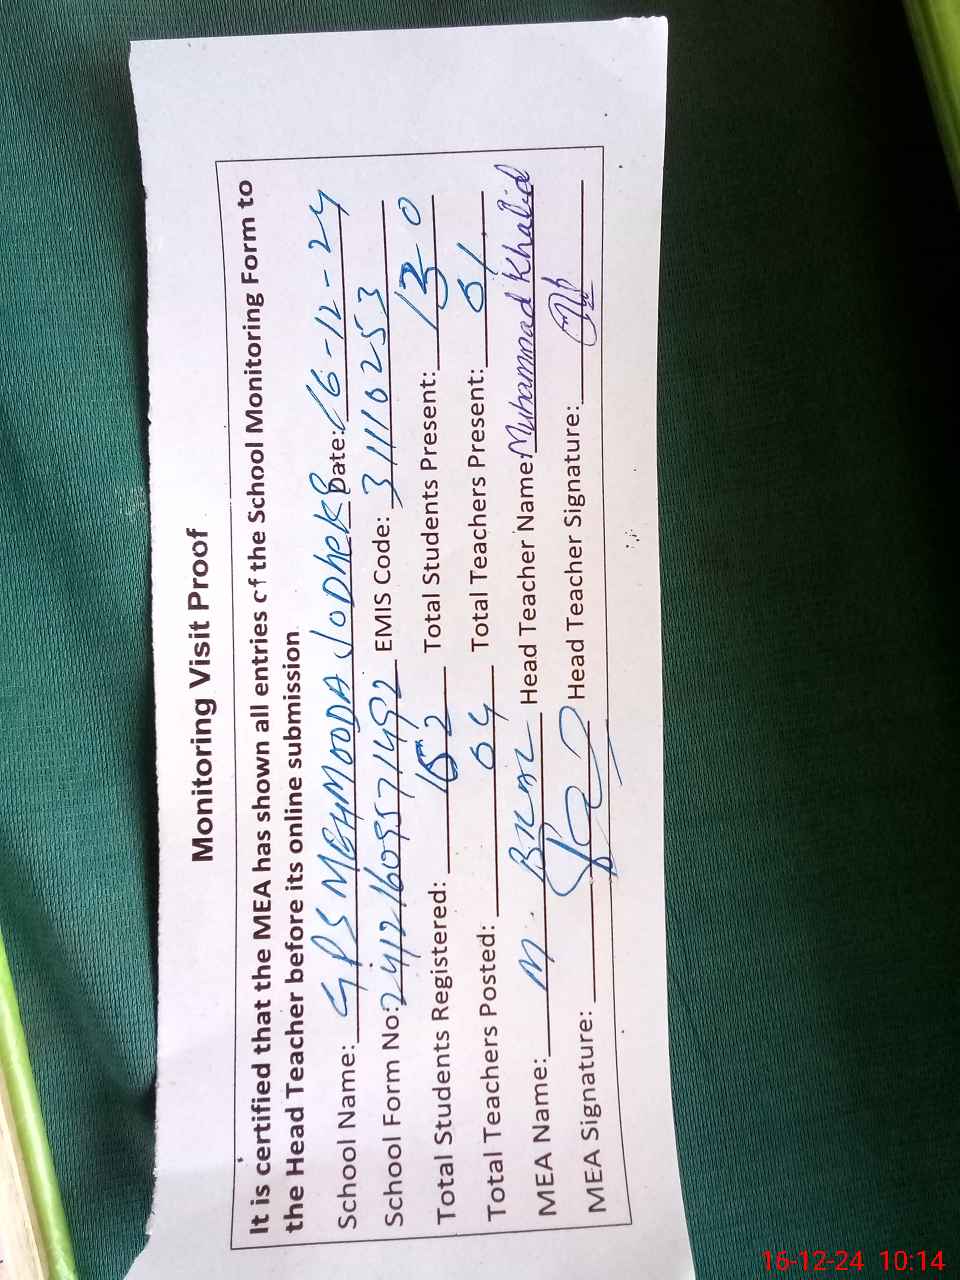 Monitoring Visit Proof
It is certified that the MEA has shown all entries of the School Monitoring Form to
the Head Teacher before its online submission
School Name: GPS MEHMOODA JODHEKE Date: 16-12-24
School Form No: 24121609571492 EMIS Code: 31110253
Total Students Registered: 152 Total Students Present: 130
Total Teachers Posted: 04 Total Teachers Present: 01
MEA Name: M. Head Teacher Name: Muhammad Khalid
MEA Signature: Head Teacher Signature:
16-12-24 10:14